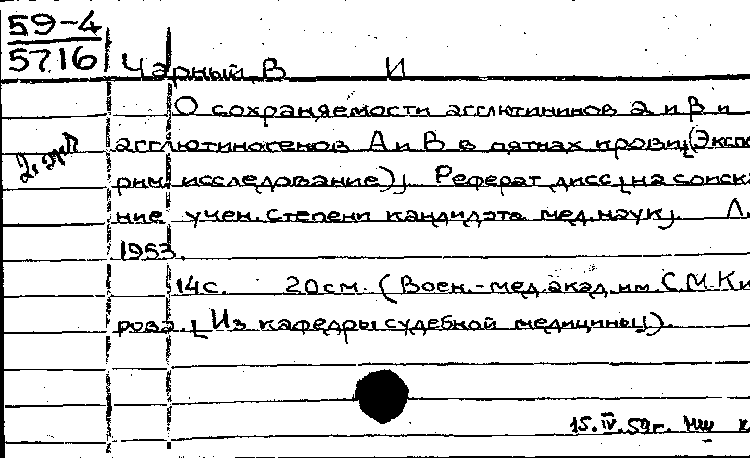 59-4
5716
Чарный, В И
О сохраняемости агглютининов α и β и
агглютиногенов А и В в пятнах крови [(Экспе
рим. исследование)]. Реферат дисс. на соиска
ние учен. степени кандидата мед. наук]. Л.
1953.
14с. 20см. (Воен.-мед. акад. им. С.М. Ки
рова. [Из кафедры судебной медицины]).
15.IV.59г.